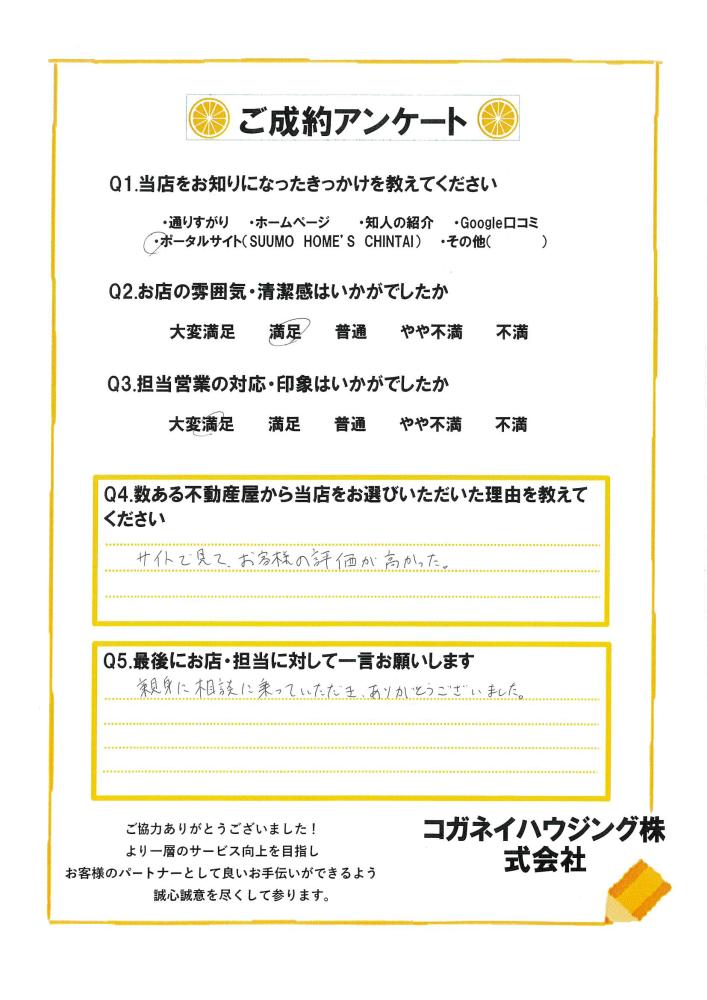 ご成約アンケート
Q1.当店をお知りになったきっかけを教えてください
・通りすがり ・ホームページ ・知人の紹介 ・Google口コミ
・ポータルサイト(SUUMO HOME'S CHINTAI) ・その他( )
Q2.お店の雰囲気・清潔感はいかがでしたか
大変満足 満足 普通 やや不満 不満
Q3.担当営業の対応・印象はいかがでしたか
大変満足 満足 普通 やや不満 不満
Q4.数ある不動産屋から当店をお選びいただいた理由を教えて
ください
サイトで見て、お客様の評価が高かった。
Q5.最後にお店・担当に対して一言お願いします
親身に相談に乗っていただき、ありがとうございました。
ご協力ありがとうございました！
より一層のサービス向上を目指し
お客様のパートナーとして良いお手伝いができるよう
誠心誠意を尽くして参ります。
コガネイハウジング株
式会社